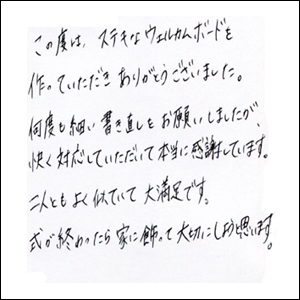 この度は、ステキなウェルカムボードを
作っていただきありがとうございました。
何度も細い書き直しをお願いしましたが、
快く対応していただいて本当に感謝しています。
二人ともよく似ていて大満足です。
式が終わったら家に飾って大切にしようと思います。